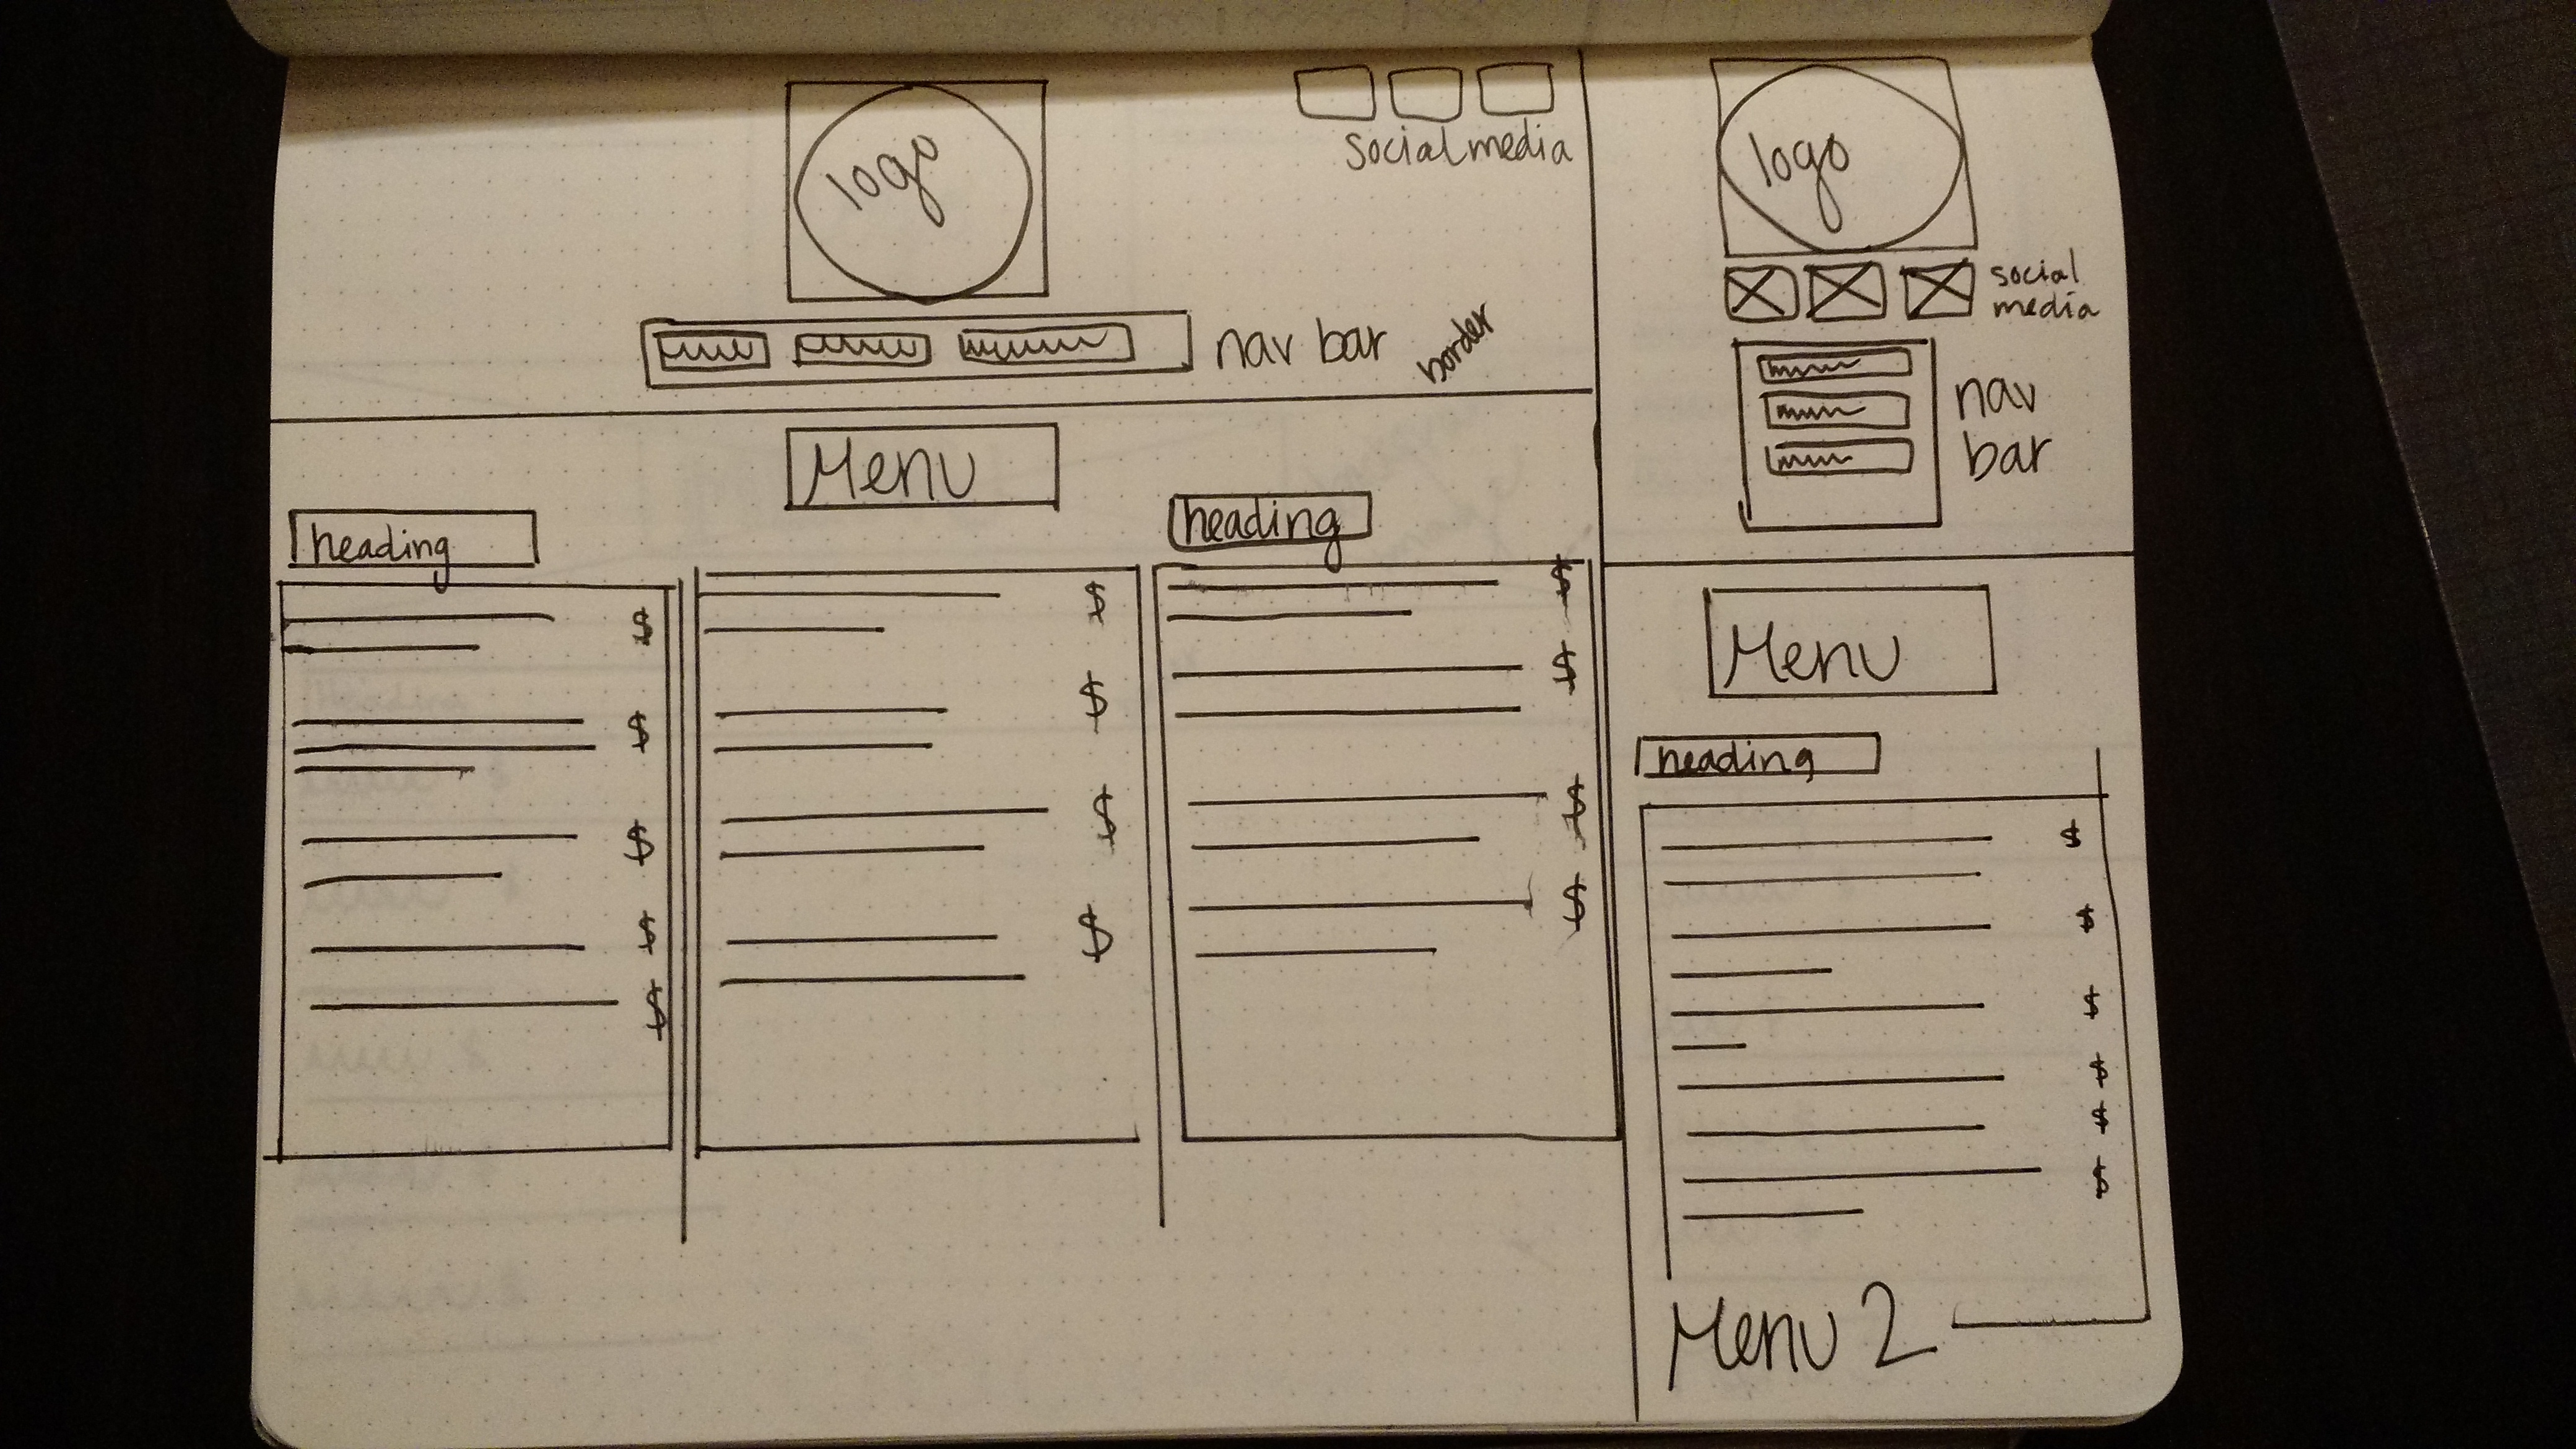 logo
Social media
nav bar
border
Menu
heading
heading
$
$
$
$
$
$
$
$
$
$
$
$
$
logo
social
media
nav
bar
Menu
heading
$
$
$
$
$
$
Menu 2